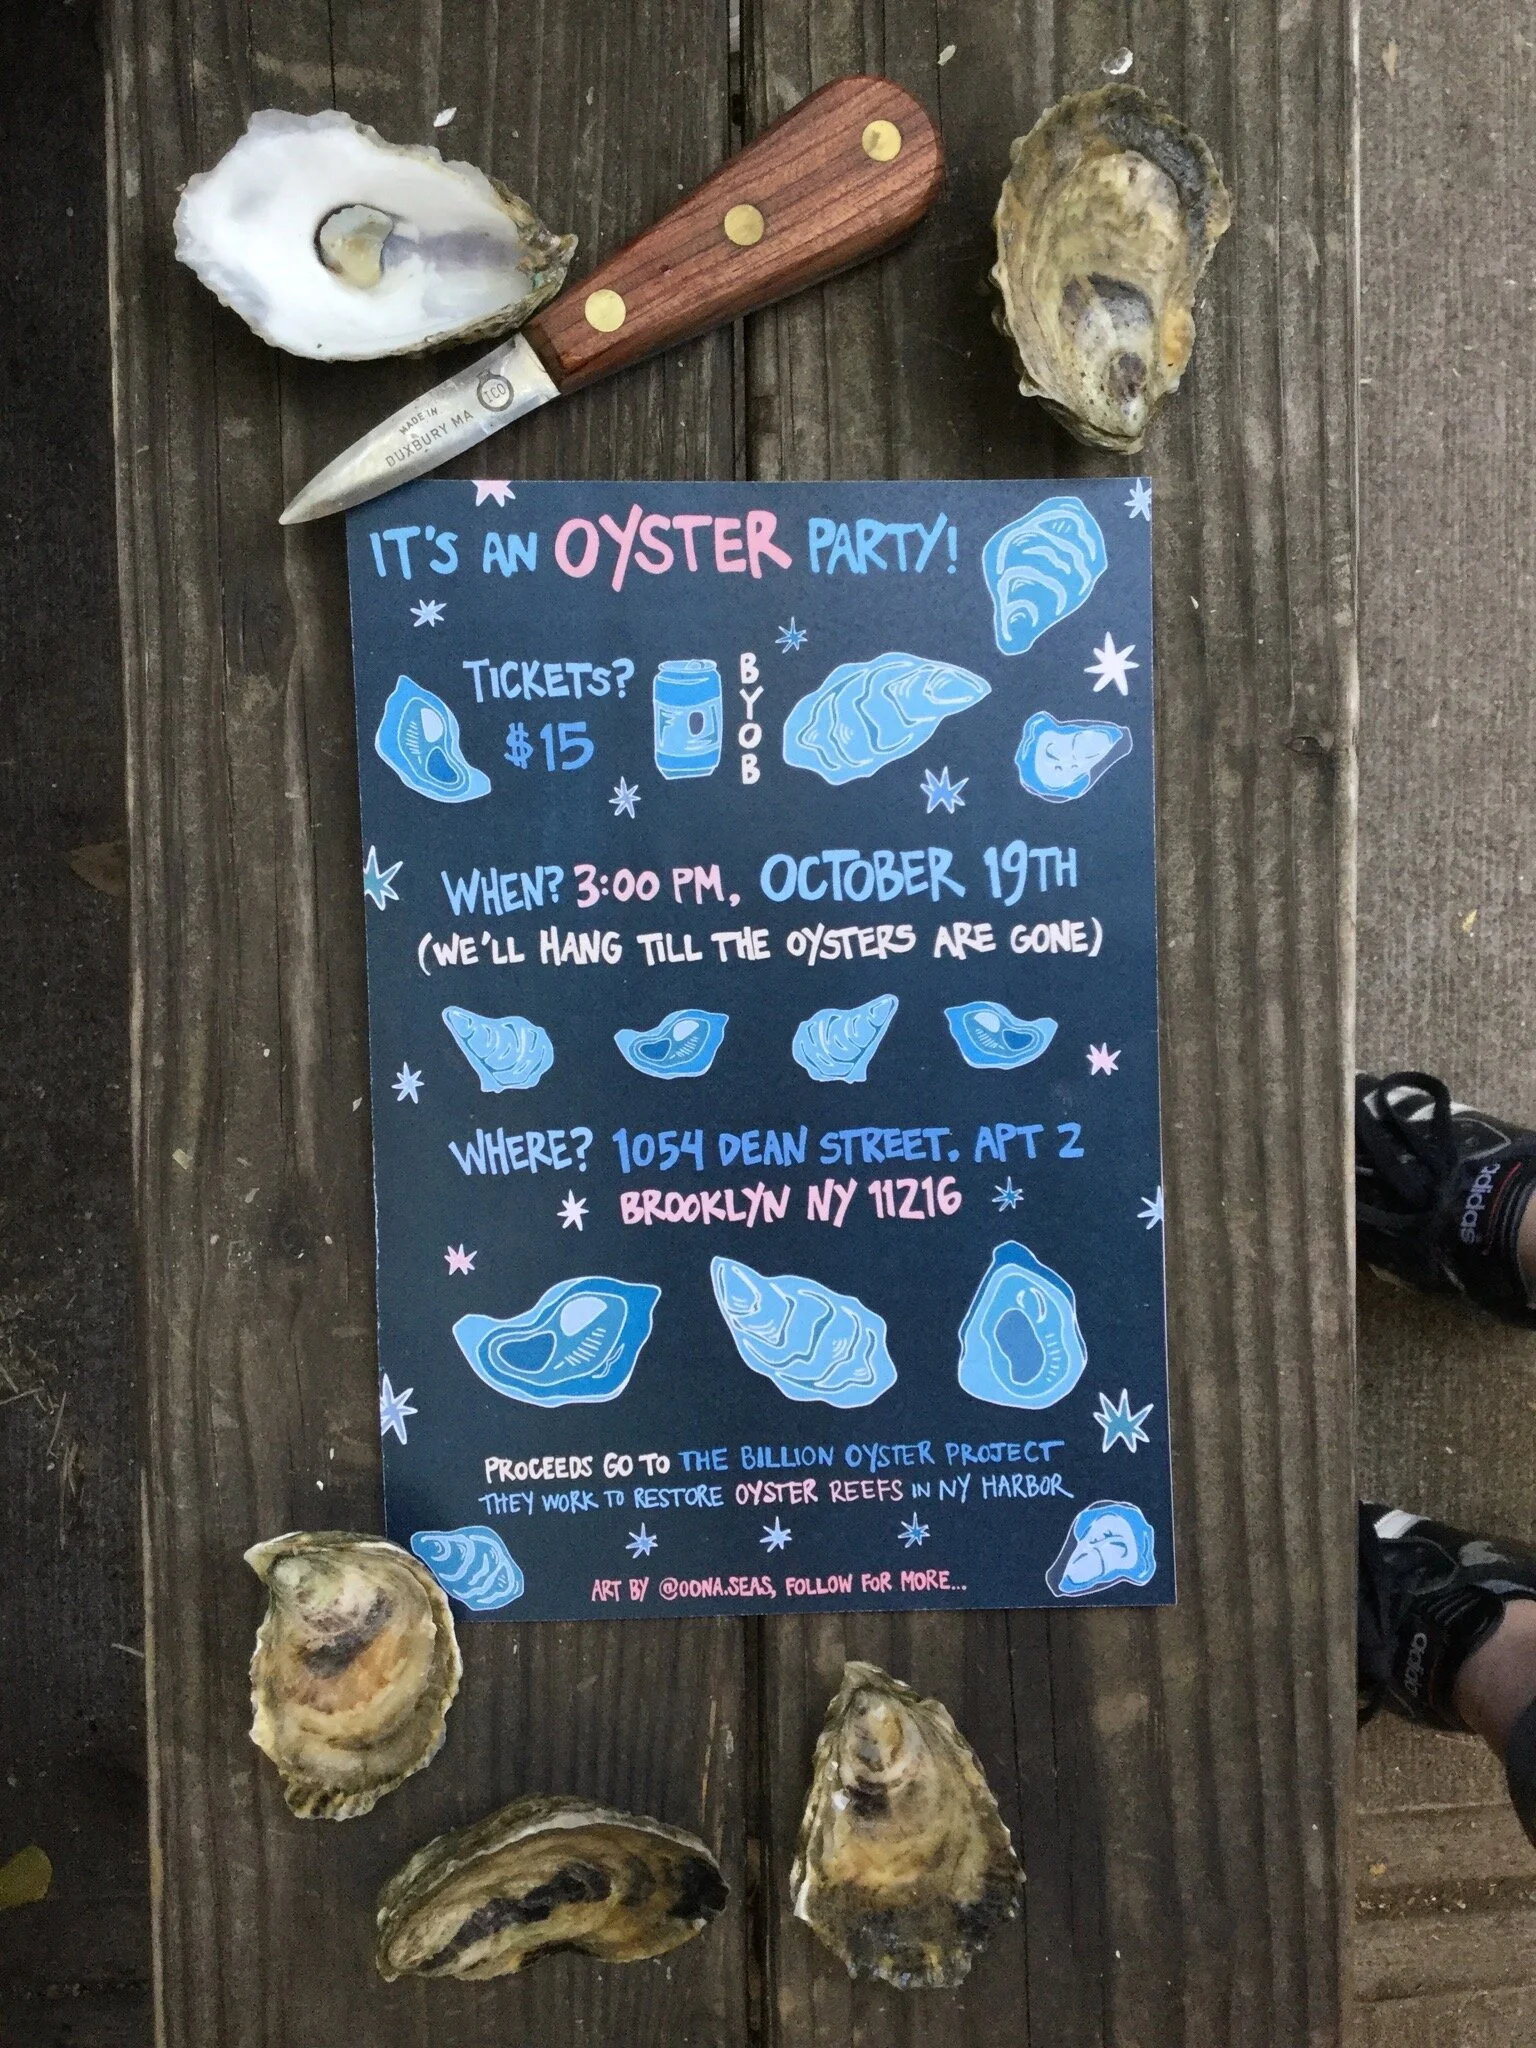 MADE IN
DUXBURY MA
ICO
IT'S AN OYSTER PARTY!
TICKETS?
$15
BYOB
WHEN? 3:00 PM, OCTOBER 19TH
(WE'LL HANG TILL THE OYSTERS ARE GONE)
WHERE? 1054 DEAN STREET. APT 2
BROOKLYN NY 11216
PROCEEDS GO TO THE BILLION OYSTER PROJECT
THEY WORK TO RESTORE OYSTER REEFS IN NY HARBOR
ART BY @OONA.SEAS, FOLLOW FOR MORE...
adidas
adidas